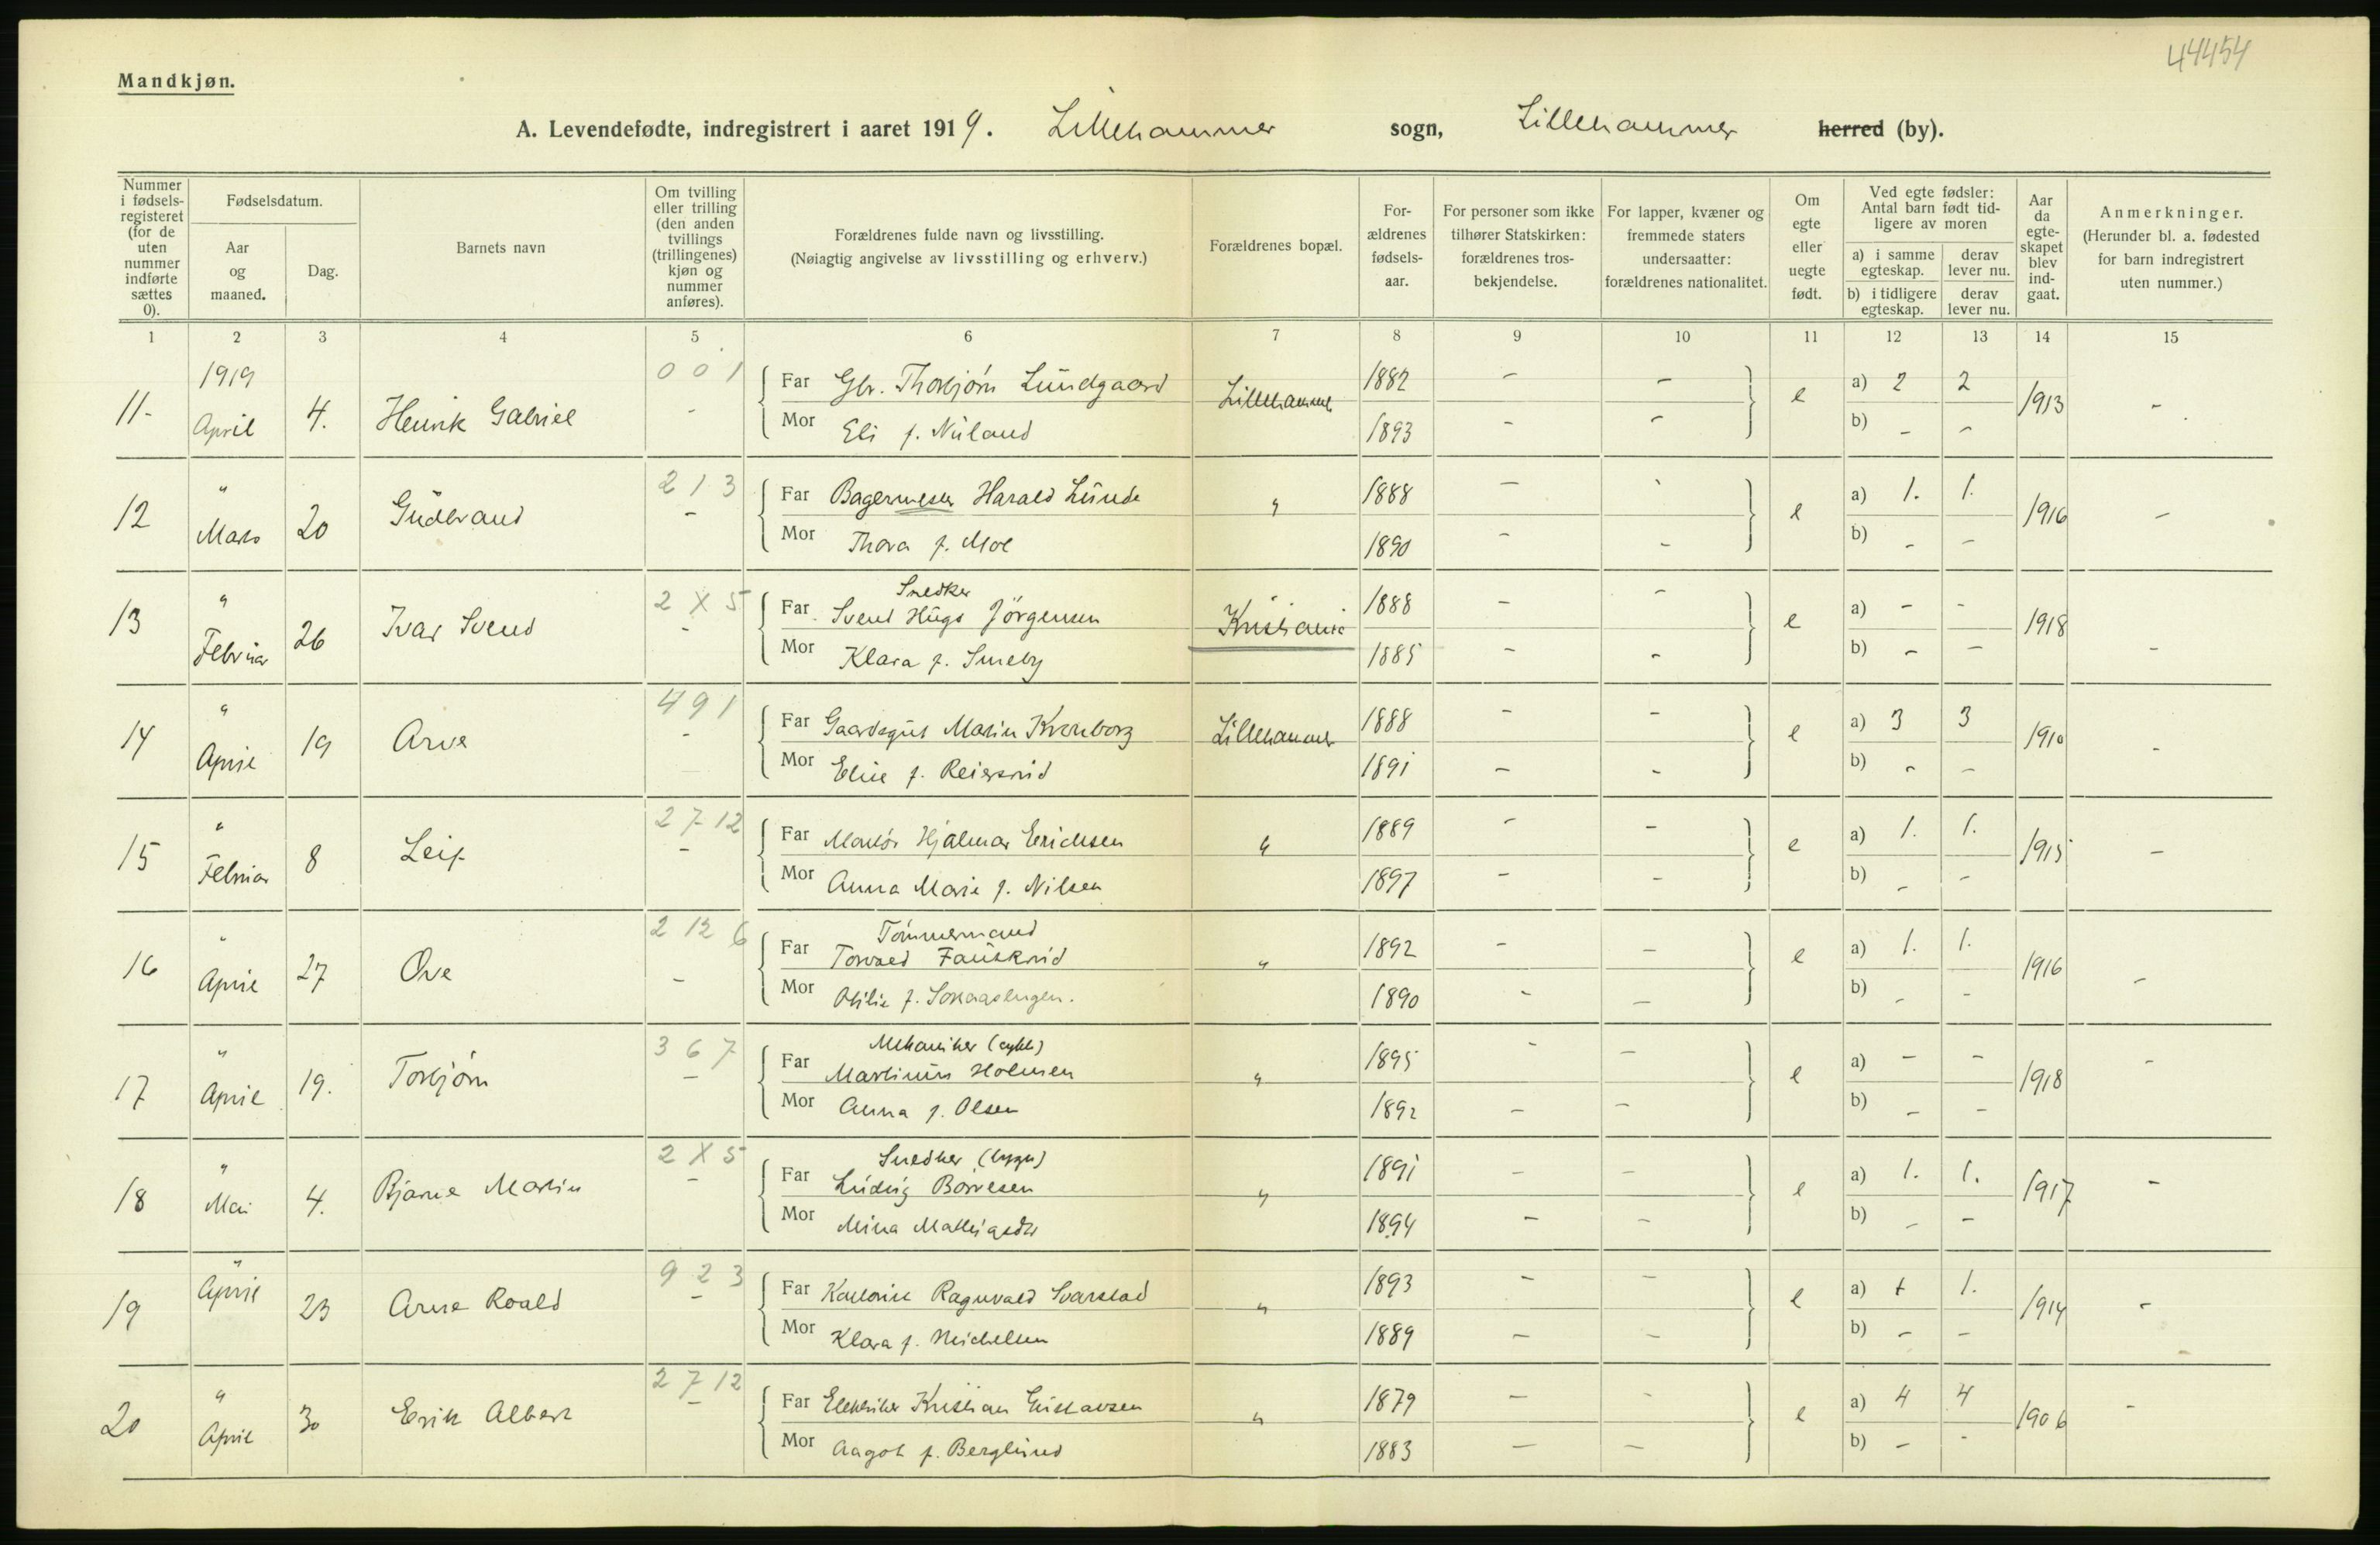 44454
Mandkjøn.
A. Levendefødte, indregistrert i aaret 1919. Lillehammer sogn, Lillehammer herred (by).
Nummer i fødsels-registeret (for de uten nummer indførte sættes 0).
Fødselsdatum.
Aar og maaned.
Dag.
Barnets navn
Om tvilling eller trilling (den anden tvillings (trillingenes) kjøn og nummer anføres).
Forældrenes fulde navn og livsstilling.
(Nøiagtig angivelse av livsstilling og erhverv.)
Forældrenes bopæl.
For-ældrenes fødsels-aar.
For personer som ikke tilhører Statskirken: forældrenes tros-bekjendelse.
For lapper, kvæner og fremmede staters undersaatter: forældrenes nationalitet.
Om egte eller uegte født.
Ved egte fødsler: Antal barn født tid-ligere av moren
a) i samme egteskap.
derav lever nu.
b) i tidligere egteskap.
derav lever nu.
Aar da egte-skapet blev ind-gaat.
Anmerkninger.
(Herunder bl. a. fødested for barn indregistrert uten nummer.)
1 2 3 4 5 6 7 8 9 10 11 12 13 14 15
1919 0 0 1
11- April 4. Henrik Gabriel - Far Gbr. Thorbjørn Lundgaard Lillehammer 1882 - - e a) 2 2 1913 -
Mor Eli f. Nüland 1893 - - b) - -
" 2 1 3
12 Mars 20 Gudbrand - Far Bagermester Harald Lunde " 1888 - - e a) 1. 1. 1916 -
Mor Thora f. Moe 1890 - - b) - -
" 2 X 5 Snedker
13 Februar 26 Ivar Svend - Far Svend Hugo Jörgensen Kristiania 1888 - - e a) - - 1918 -
Mor Klara f. Smeby 1885 - - b) - -
" 4 9 1
14 April 19 Arve - Far Gaardsgut Martin Kronborg Lillehammer 1888 - - e a) 3 3 1910 -
Mor Elise f. 1891 - - b) - -
" 2 7 12
15 Februar 8 Leif - Far Hjalmar Erichsen " 1889 - - e a) 1. 1. 1915 -
Mor Anna Marie f. Nilsen 1897 - - b) - -
" 2 12 6 Tömmermand
16 April 27 Ove - Far Torvald Fauskrud " 1892 - - e a) 1. 1. 1916 -
Mor Otilie f. 1890 - - b) - -
" 3 6 7 Mekaniker (cykle)
17 April 19. Torbjørn - Far Martinus Holmen " 1895 - - e a) - - 1918 -
Mor Anna f. Olsen 1892 - - b) - -
" 2 X 5 Snedker (bygn)
18 Mai 4. Bjarne Martin - Far Ludvig Börresen " 1891 - - e a) 1. 1. 1917 -
Mor Mina 1894 - - b) - -
" 9 2 3
19 April 23 Arne Roald - Far Kontorist Ragnvald Svarstad " 1893 - - e a) 1 1. 1914 -
Mor Klara f. Michelsen 1889 - - b) - -
" 2 7 12
20 April 30 Erik Albert - Far Elektriker Kristian Gustavsen " 1879 - - e a) 4 4 1906 -
Mor Aagot f. Berglund 1883 - - b) - -